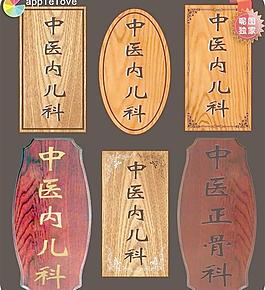 applelove
昵图
独家
中医内儿科
中医内儿科
中医内儿科
中医内儿科
中医内儿科
中医正骨科